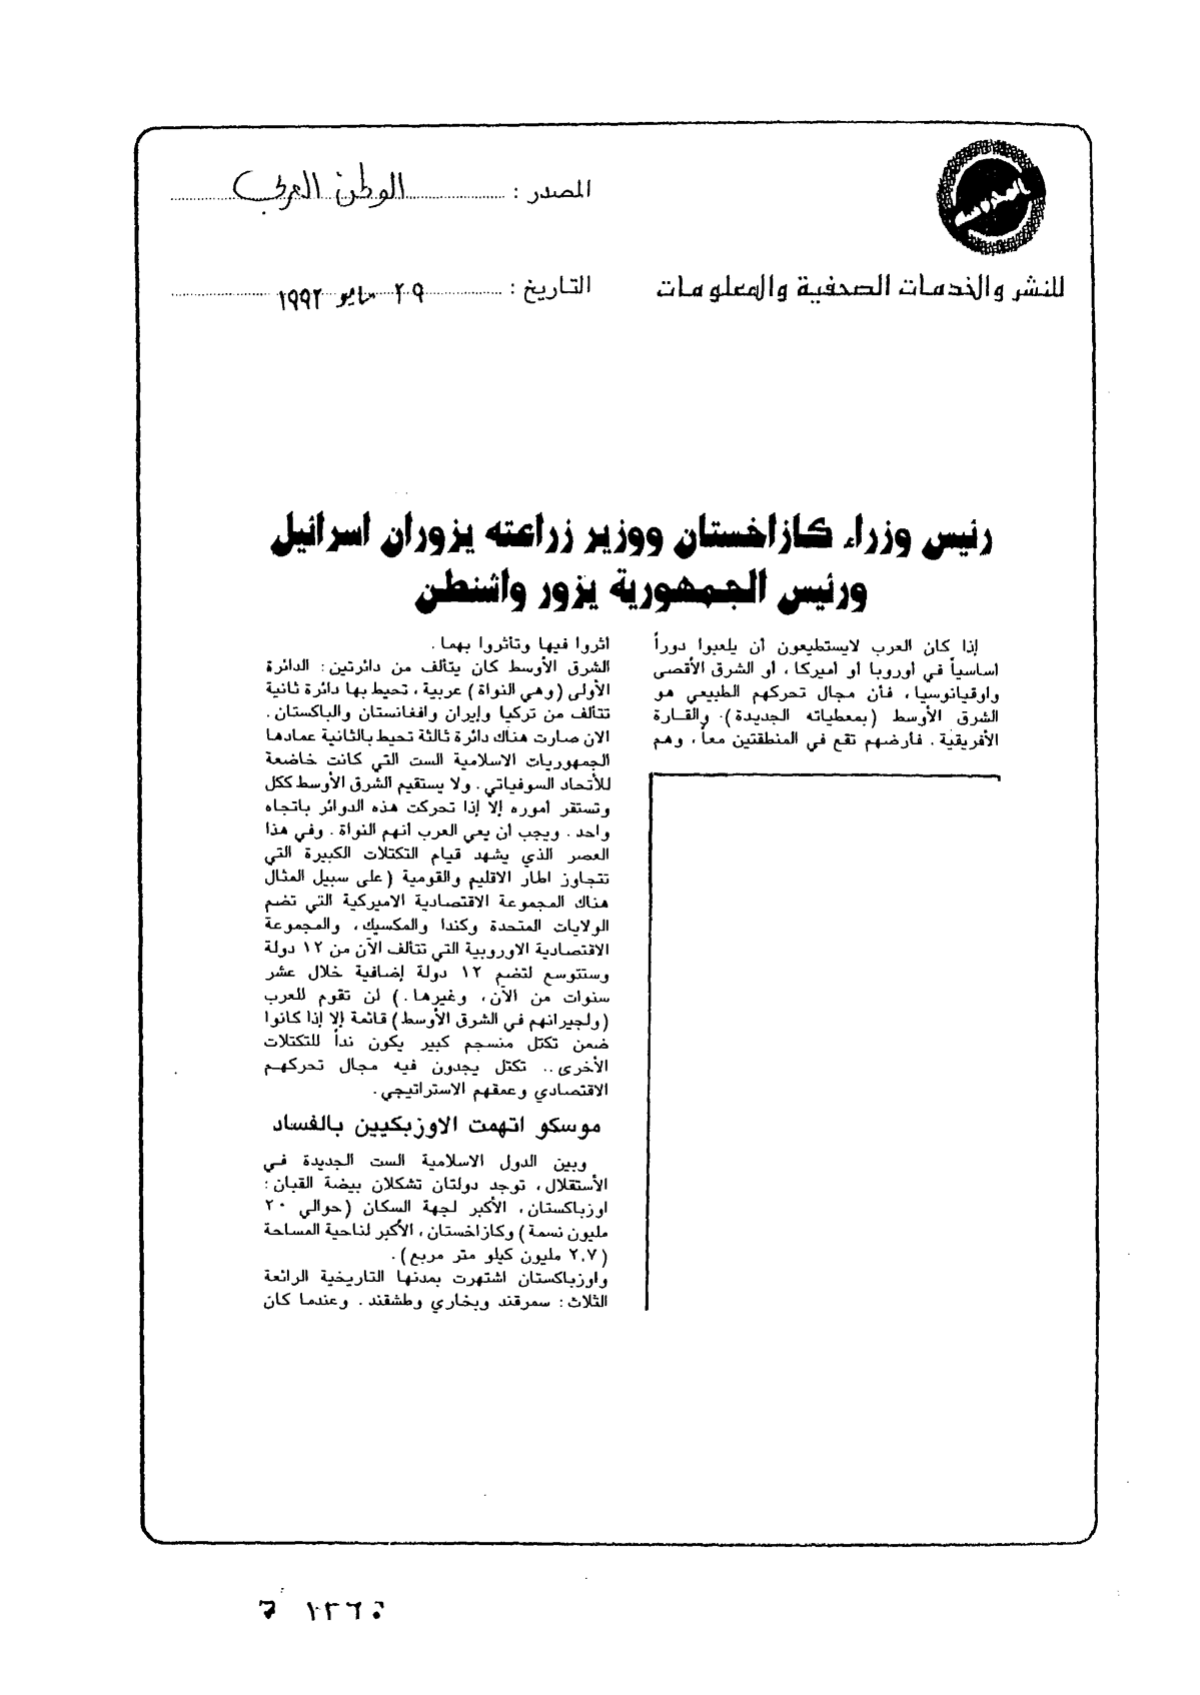 المصدر : الوطن العربي
للنشر والخدمات الصحفية والمعلومات
التاريخ : ٢٩ مايو ١٩٩٢
رئيس وزراء كازاخستان ووزير زراعته يزوران اسرائيل
ورئيس الجمهورية يزور واشنطن
إذا كان العرب لايستطيعون أن يلعبوا دوراً
اساسياً في أوروبا أو أميركا ، أو الشرق الأقصى
واوقيانوسيا ، فأن مجال تحركهم الطبيعي هو
الشرق الأوسط (بمعطياته الجديدة) والقارة
الأفريقية . فأرضهم تقع في المنطقتين معاً ، وهم
أثروا فيها وتأثروا بهما .
الشرق الأوسط كان يتألف من دائرتين : الدائرة
الأولى (وهي النواة) عربية ، تحيط بها دائرة ثانية
تتألف من تركيا وإيران وافغانستان والباكستان .
الان صارت هناك دائرة ثالثة تحيط بالثانية عمادها
الجمهوريات الاسلامية الست التي كانت خاضعة
للأتحاد السوفياتي . ولا يستقيم الشرق الأوسط ككل
وتستقر أموره إلا إذا تحركت هذه الدوائر باتجاه
واحد . ويجب أن يعي العرب أنهم النواة . وفي هذا
العصر الذي يشهد قيام التكتلات الكبيرة التي
تتجاوز اطار الاقليم والقومية (على سبيل المثال
هناك المجموعة الاقتصادية الاميركية التي تضم
الولايات المتحدة وكندا والمكسيك ، والمجموعة
الاقتصادية الاوروبية التي تتألف الآن من ١٢ دولة
وستتوسع لتضم ١٢ دولة إضافية خلال عشر
سنوات من الآن ، وغيرها .) لن تقوم للعرب
(ولجيرانهم في الشرق الأوسط) قائمة إلا إذا كانوا
ضمن تكتل منسجم كبير يكون نداً للتكتلات
الأخرى .. تكتل يجدون فيه مجال تحركهم
الاقتصادي وعمقهم الاستراتيجي .
موسكو اتهمت الاوزبكيين بالفساد
وبين الدول الاسلامية الست الجديدة في
الأستقلال ، توجد دولتان تشكلان بيضة القبان :
اوزباكستان ، الأكبر لجهة السكان (حوالي ٢٠
مليون نسمة) وكازاخستان ، الأكبر لناحية المساحة
(٢,٧ مليون كيلو متر مربع) .
واوزباكستان اشتهرت بمدنها التاريخية الرائعة
الثلاث : سمرقند وبخاري وطشقند . وعندما كان